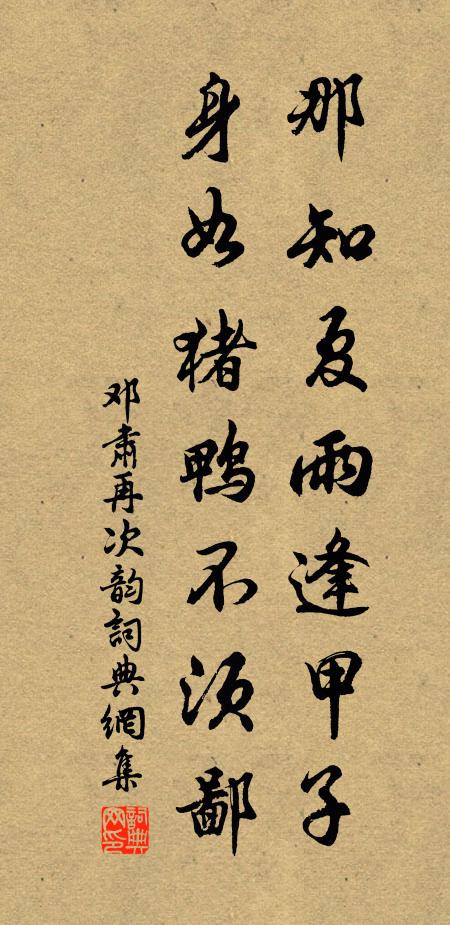 那知夏雨逢甲子
身如猪鸭不须鄙
邓肃再次韵詞典網集
詞典网印